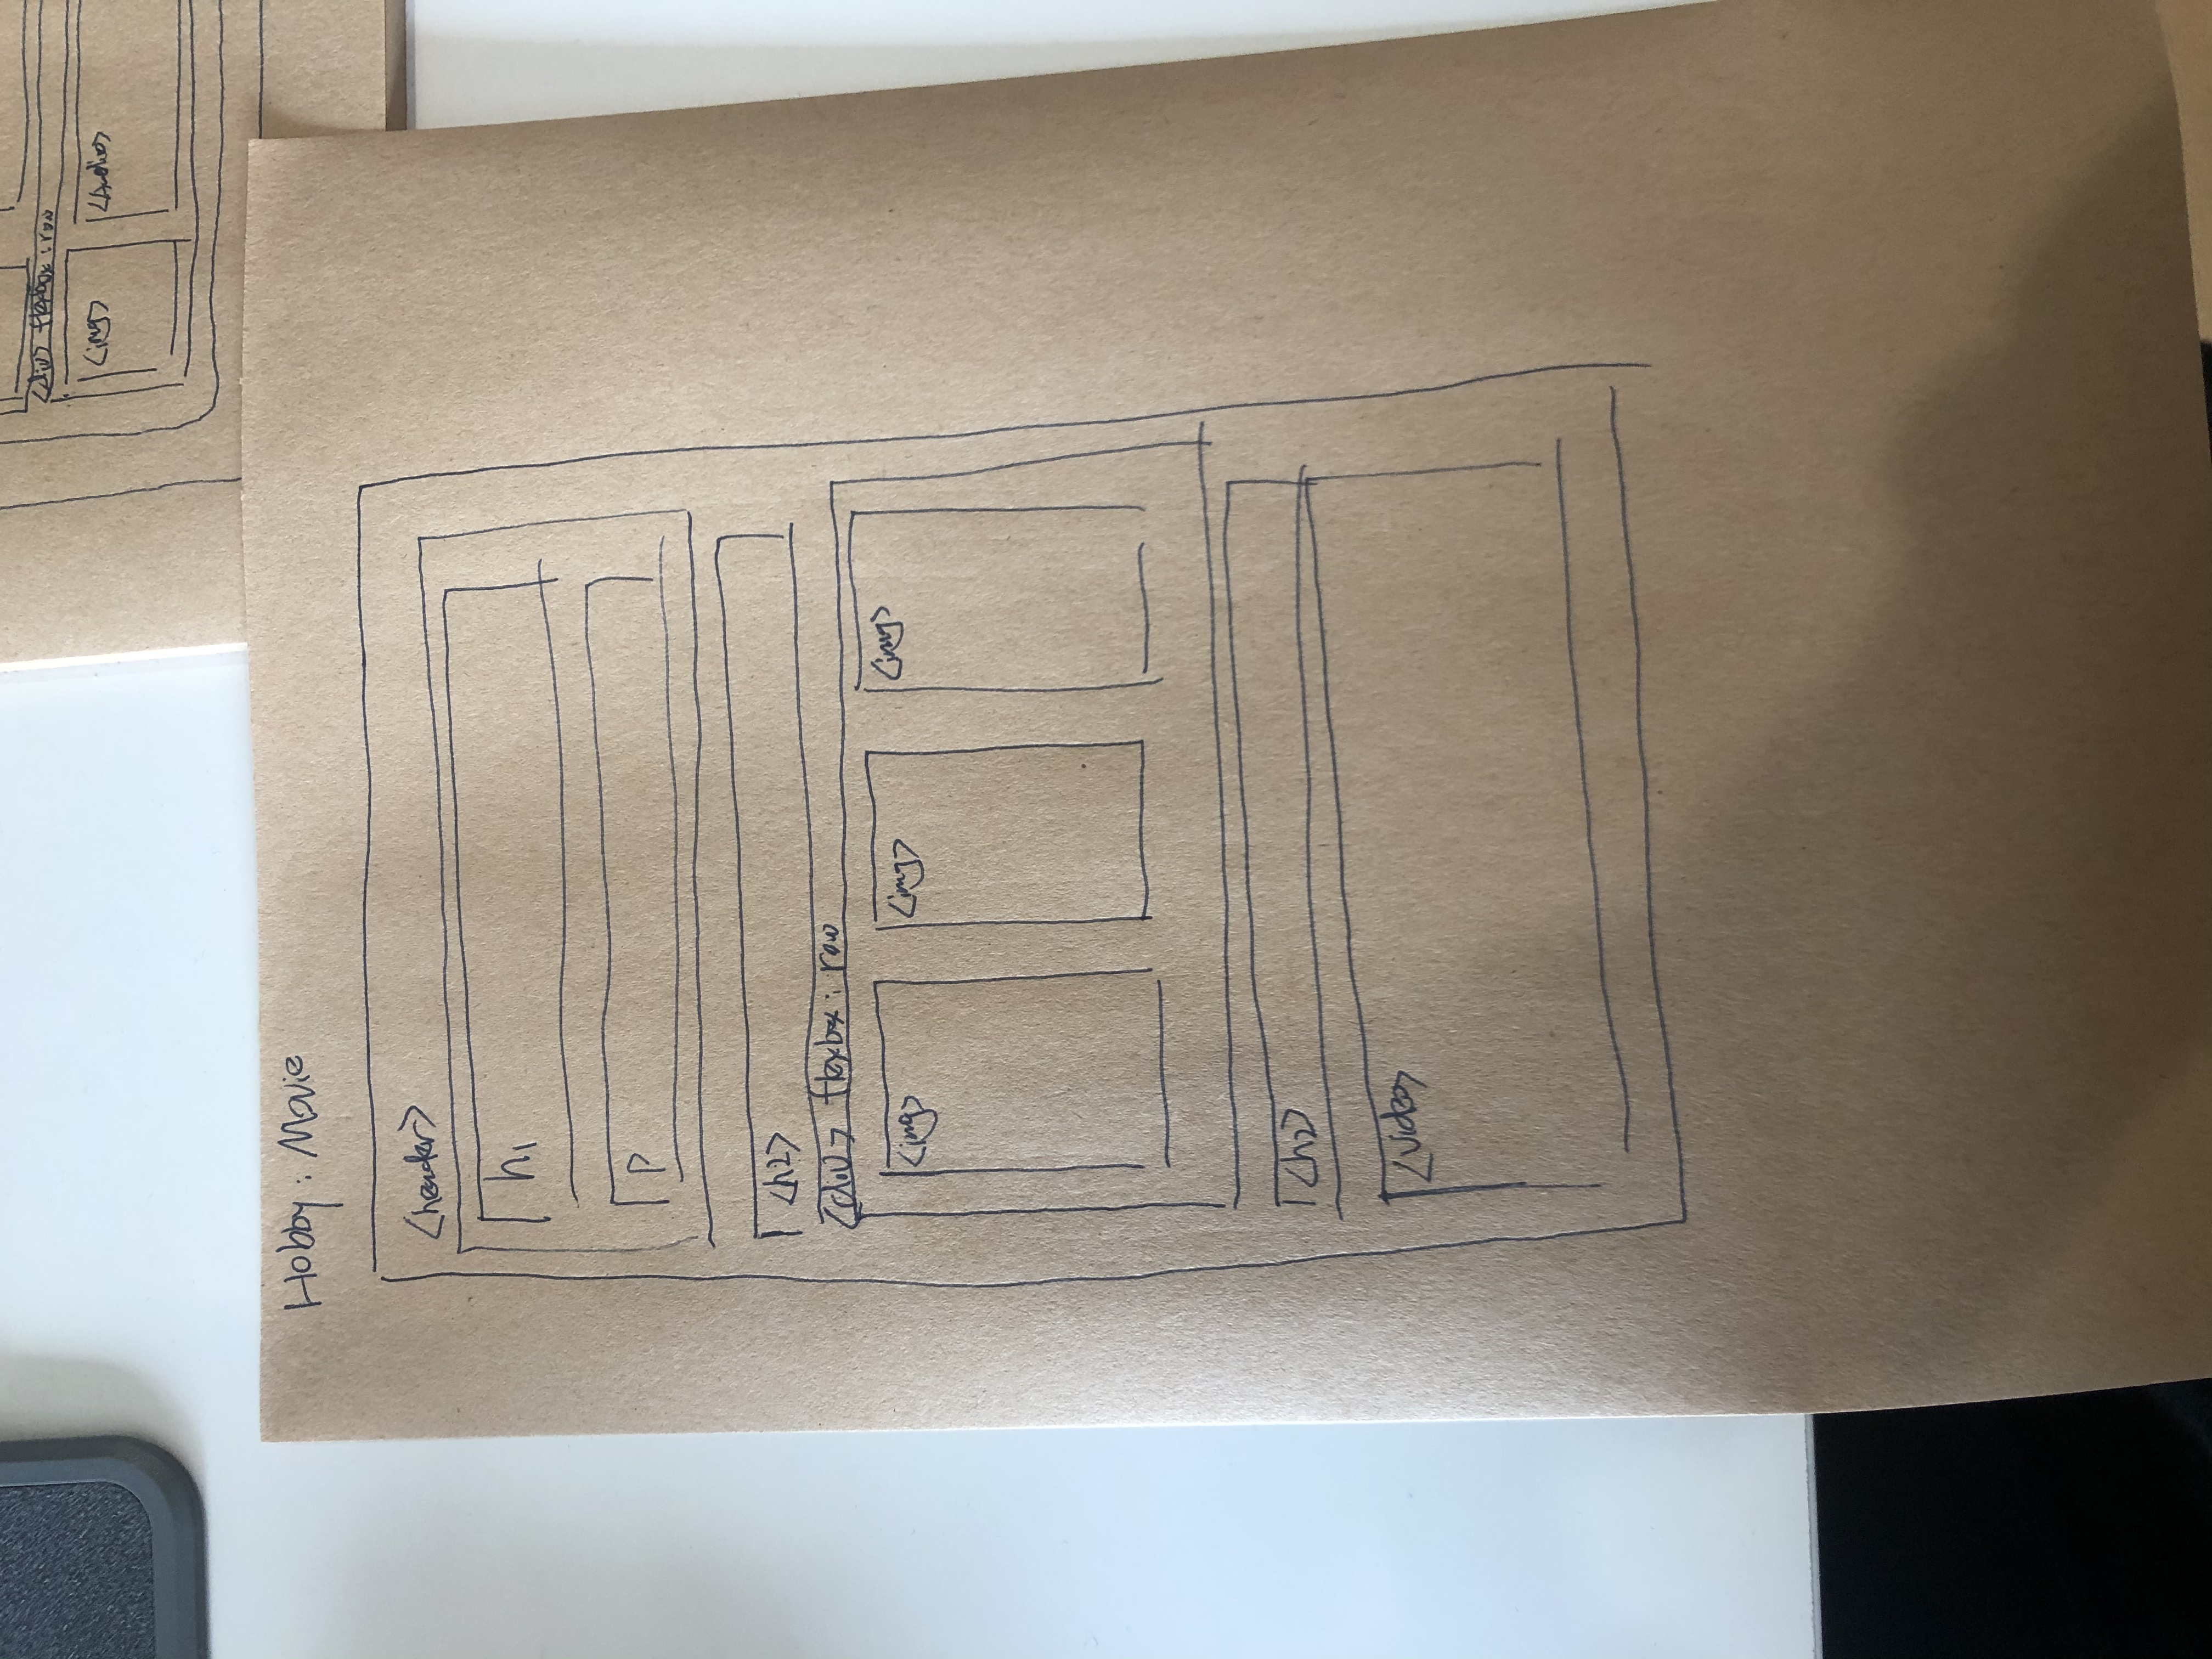 <div> flexbox : row
<img> <Audio>
Hobby : Movie
<header>
h1
p
<h2>
<div> flexbox : row
<img> <img> <img>
<h2>
<video>